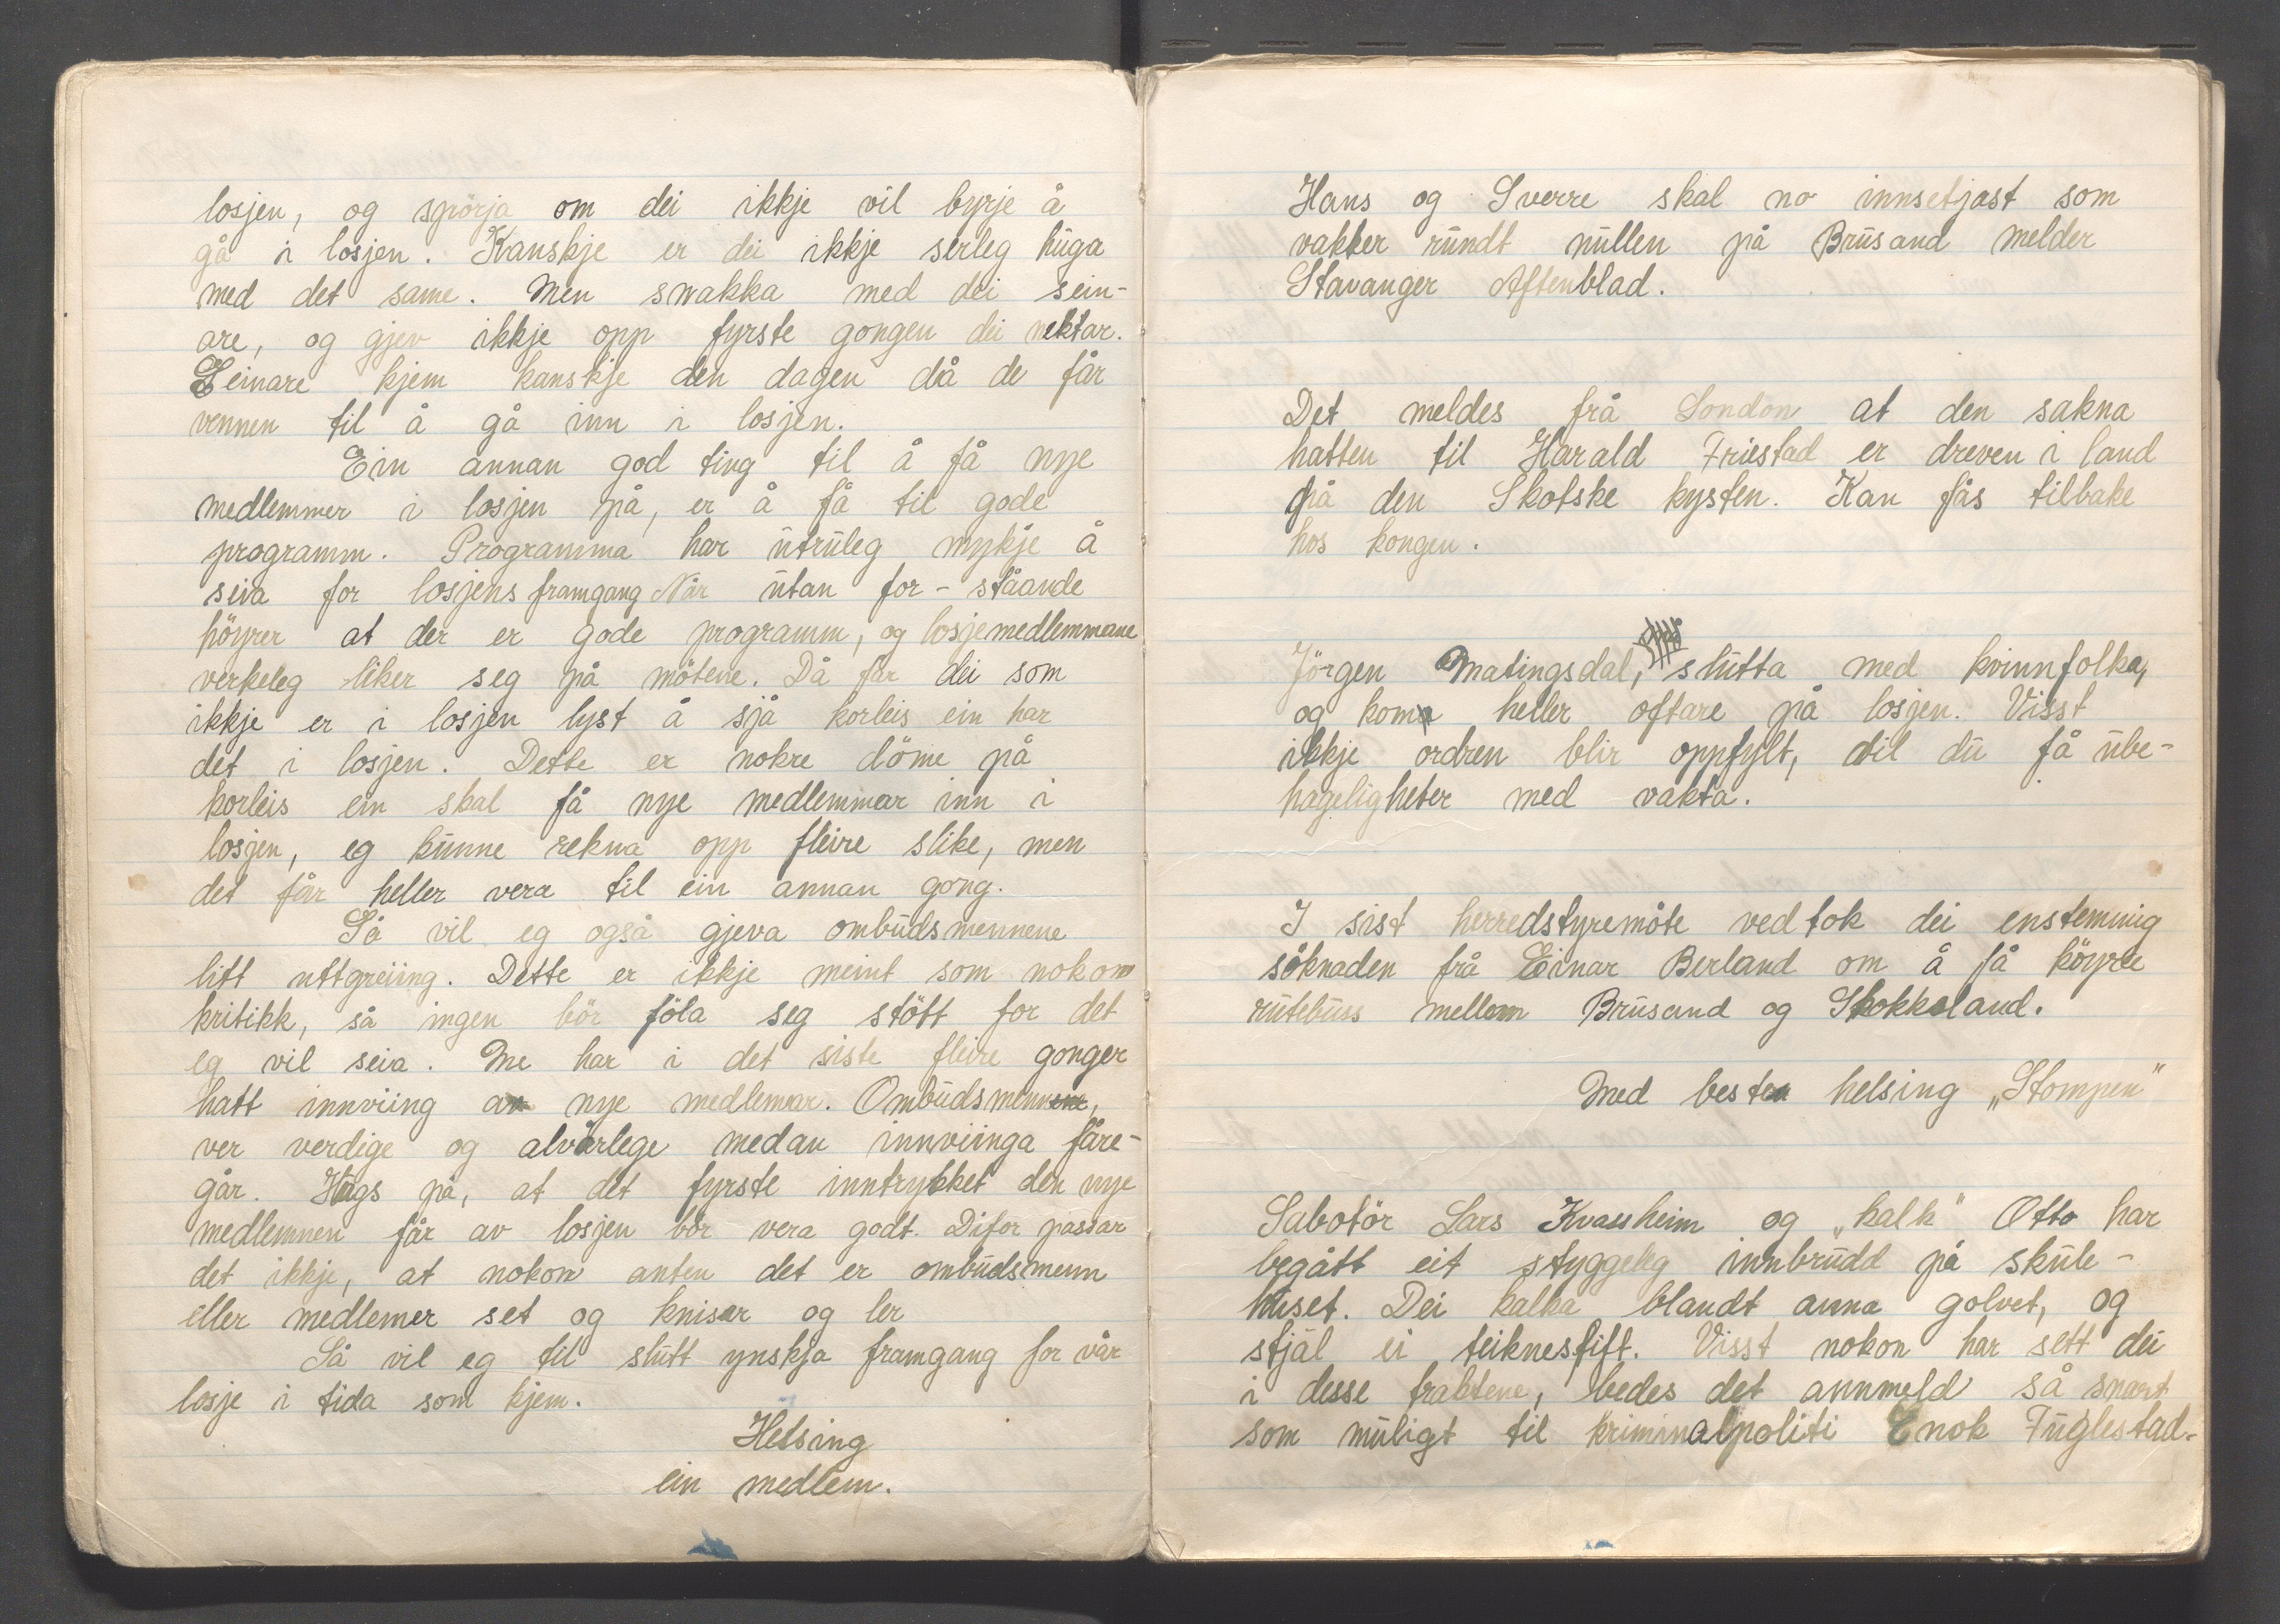 losjen, og spörja om dei ikkje vil byrje å
gå i losjen. Kanskje er dei ikkje serleg huga
med det same. Men snakka med dei sein-
are, og gjev ikkje opp fyrste gongen dei nektar.
Seinare kjem kanskje den dagen då de får
vennen til å gå inn i losjen.
Ein annan god ting til å få nye
medlemmer i losjen på, er å få til gode
programm. Programma har utruleg mykje å
seia for losjens framgang Når utan for-ståande
höyrer at der er gode programm, og losjemedlemmane
verkeleg liker seg på mötene. Då får dei som
ikkje er i losjen lyst å sjå korleis ein har
det i losjen. Dette er nokre döme på
korleis ein skal få nye medlemmar inn i
losjen, eg kunne rekna opp fleire slike, men
det får heller vera til ein annan gong.
Så vil eg også gjeva ombudsmennene
litt uttgreiing. Dette er ikkje meint som nokon
kritikk, så ingen bör föla seg stött for det
eg vil seia. Me har i det siste fleire gonger
hatt innviing av nye medlemar. Ombudsmennene,
ver verdige og alvårlege medan innviinga fåre-
går. Hugs på, at det fyrste inntrykket den nye
medlemnen får av losjen bör vera godt. Difor passar
det ikkje, at nokon anten det er ombudsmenn
eller medlemer set og knisar og ler
Så vil eg til slutt ynskja framgang for vår
losje i tida som kjem.
Helsing
ein medlem.
Hans og Sverre skal no innsetjast som
vakker rundt nullen på Brusand melder
Stavanger Aftenblad.
Det meldes frå London at den sakna
hatten til Harald Friestad er dreven i land
på den Skotske kysten. Kan fås tilbake
hos kongen.
Jörgen Matingsdal, slutta med kvinnfolka,
og koma heller oftare på losjen. Visst
ikkje ordren blir oppfylt, vil du få ube-
hageligheter med vakta.
I sist herredstyremöte vedtok dei enstemmig
söknaden frå Einar Berland om å få köyre
rutebuss mellom Brusand og Stokkaland.
Med beste helsing „Stompen"
Sabotör Lars Kvassheim og „kalk" Otto har
begått eit styggeleg innbrudd på skule-
huset. Dei kalka blandt anna golvet, og
stjäl ei teiknestift. Visst nokon har sett dei
i desse traktene, bedes det annmeld så snart
som muligt til kriminalpoliti Enok Fuglestad.